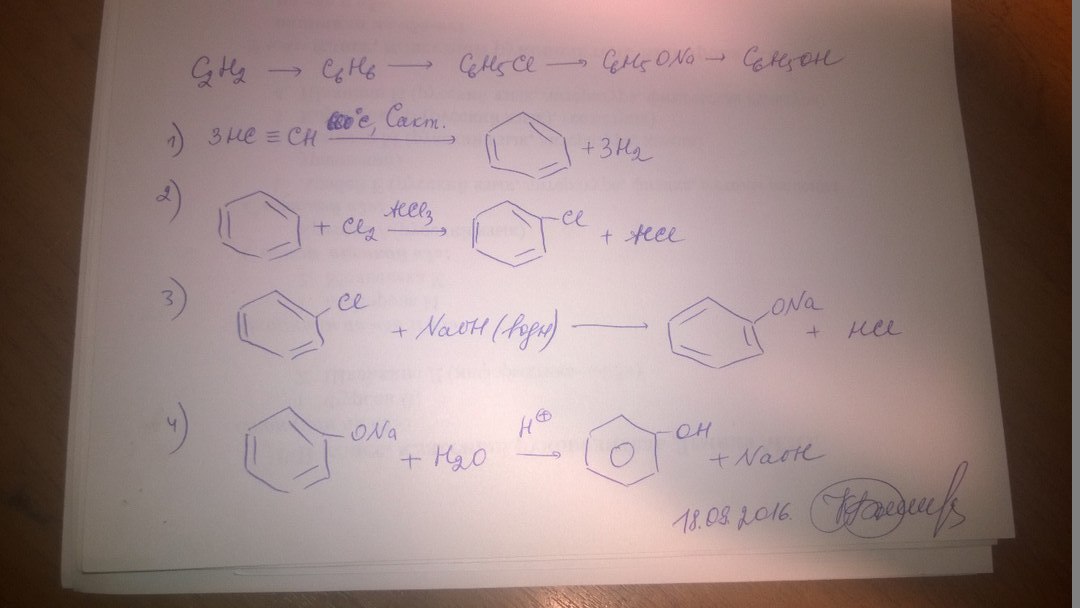 C₂H₂ → C₆H₆ → C₆H₅Cl → C₆H₅ONa → C₆H₅OH
1) 3HC ≡ CH 600°C, Cакт. → + 3H₂
2) + Cl₂ AlCl₃ → Cl + HCl
3) Cl + NaOH (водн) → ONa + HCl
4) ONa + H₂O H⊕ → OH + NaOH
18.09.2016.